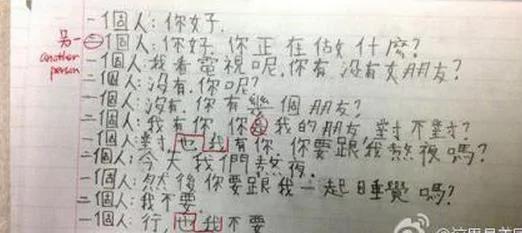 一個人:你好.
另一 another person
二個人:你好,你正在做什麼?
一個人:我看電視呢,你有沒有女朋友?
二個人:沒有,你呢?
一個人:沒有,你有幾個朋友?
二個人:我有你,你是我的朋友,對不對?
一個人:對,也我有你,你要跟我熬夜嗎?
二個人:今天我們熬夜.
一個人:然後你要跟我一起睡覺嗎?
二個人:我不要.
一個人:行,也我不要